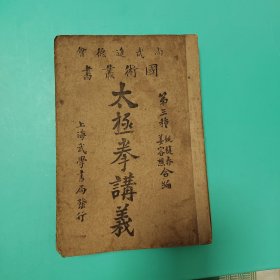 尚武進德會
國術叢書
第三種
姚馥春
姜容樵
合編
太極拳講義
上海武學書局發行